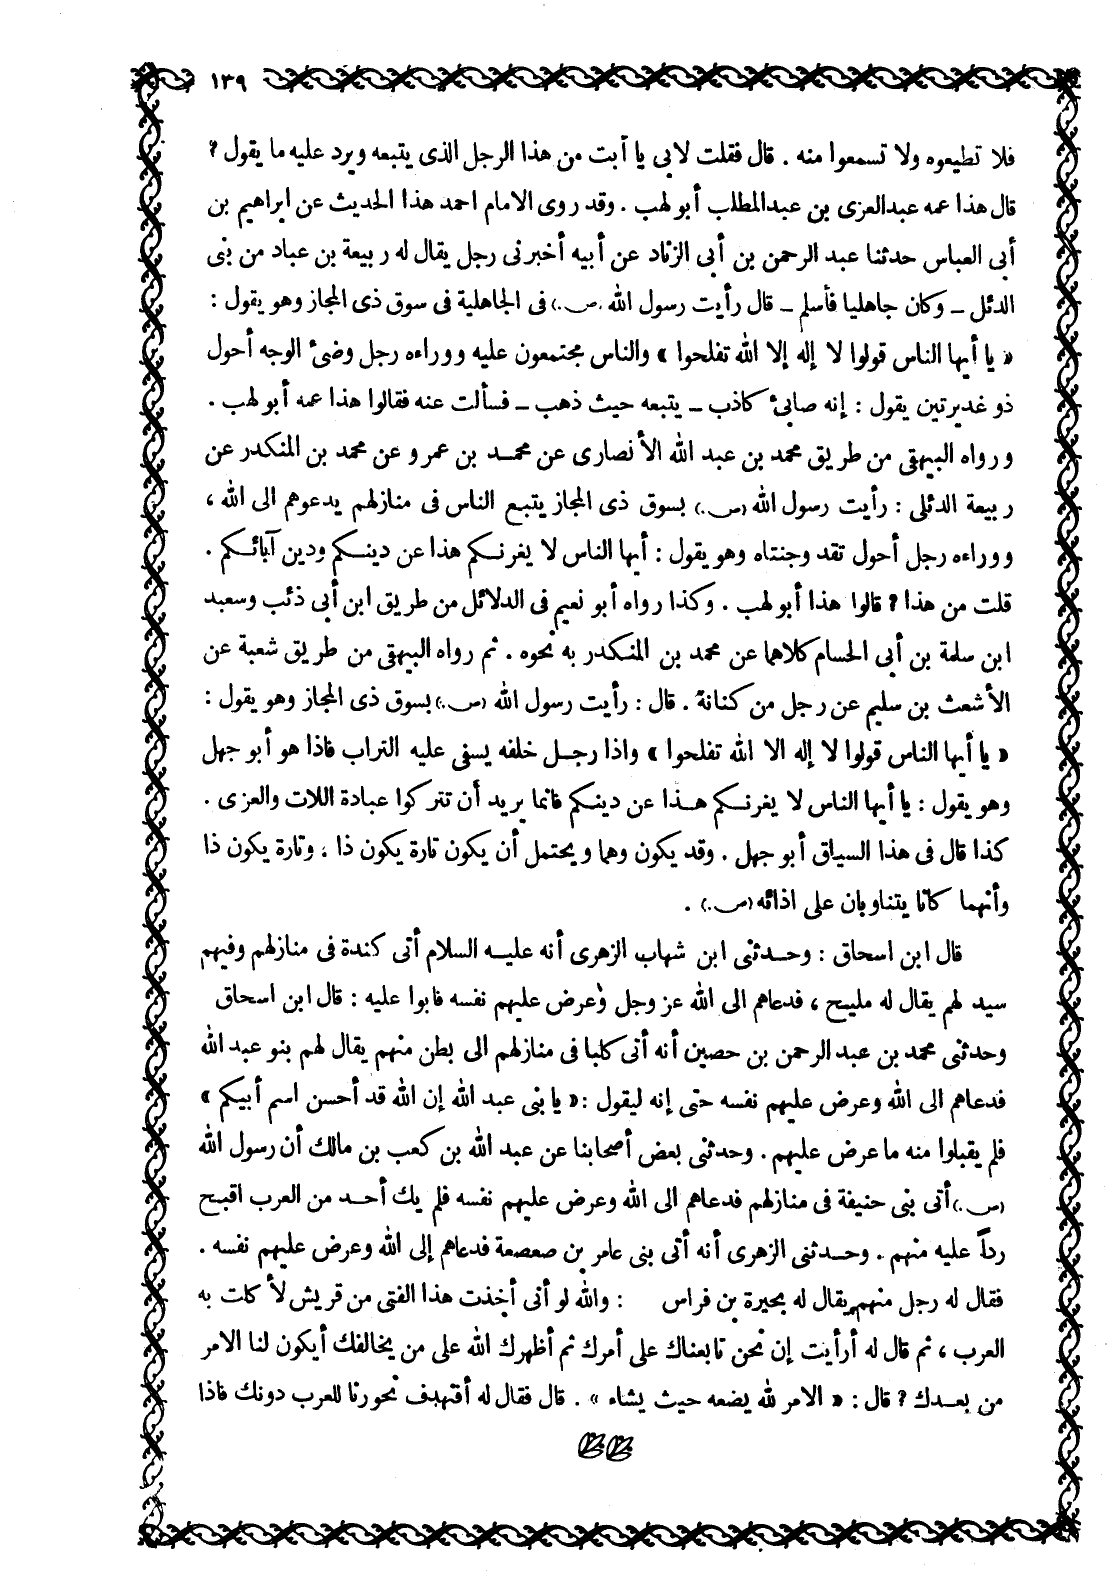 ١٣٩
فلا تطيعوه ولا تسمعوا منه . قال فقلت لابى يا أبت من هذا الرجل الذى يتبعه ويرد عليه ما يقول ?
قال هذا عمه عبدالعزى بن عبدالمطلب أبو لهب . وقد روى الامام احمد هذا الحديث عن ابراهيم بن
أبى العباس حدثنا عبد الرحمن بن أبى الزناد عن أبيه أخبرنى رجل يقال له ربيعة بن عباد من بنى
الدئل ــ وكان جاهليا فأسلم ــ قال رأيت رسول الله (ص.) فى الجاهلية فى سوق ذى المجاز وهو يقول :
« يا أيها الناس قولوا لا إله إلا الله تفلحوا » والناس مجتمعون عليه ووراءه رجل وضئ الوجه أحول
ذو غديرتين يقول : إنه صابئ كاذب ــ يتبعه حيث ذهب ــ فسألت عنه فقالوا هذا عمه أبو لهب .
ورواه البيهقى من طريق محمد بن عبد الله الأنصارى عن محمد بن عمرو عن محمد بن المنكدر عن
ربيعة الدئلى : رأيت رسول الله (ص.) بسوق ذى المجاز يتبع الناس فى منازلهم يدعوهم الى الله ،
ووراءه رجل أحول تقد وجنتاه وهو يقول : أيها الناس لا يغرنكم هذا عن دينكم ودين آبائكم .
قلت من هذا ? قالوا هذا أبو لهب . وكذا رواه أبو نعيم فى الدلائل من طريق ابن أبى ذئب وسعيد
ابن سلمة بن أبى الحسام كلاهما عن محمد بن المنكدر به نحوه . ثم رواه البيهقى من طريق شعبة عن
الأشعث بن سليم عن رجل من كنانة . قال : رأيت رسول الله (ص.) بسوق ذى المجاز وهو يقول :
« يا أيها الناس قولوا لا إله الا الله تفلحوا » واذا رجل خلفه يسفى عليه التراب فاذا هو أبو جهل
وهو يقول : يا أيها الناس لا يغرنكم هذا عن دينكم فانما يريد أن تتركوا عبادة اللات والعزى .
كذا قال فى هذا السياق أبو جهل . وقد يكون وهما ويحتمل أن يكون تارة يكون ذا ، وتارة يكون ذا
وأنهما كانا يتناوبان على اذائه (ص.) .
قال ابن اسحاق : وحدثنى ابن شهاب الزهرى أنه عليه السلام أتى كندة فى منازلهم وفيهم
سيد لهم يقال له مليح ، فدعاهم الى الله عز وجل وعرض عليهم نفسه فابوا عليه : قال ابن اسحاق
وحدثنى محمد بن عبد الرحمن بن حصين أنه أتى كلبا فى منازلهم الى بطن منهم يقال لهم بنو عبد الله
فدعاهم الى الله وعرض عليهم نفسه حتى إنه ليقول : « يا بنى عبد الله إن الله قد أحسن اسم أبيكم »
فلم يقبلوا منه ما عرض عليهم . وحدثنى بعض أصحابنا عن عبد الله بن كعب بن مالك أن رسول الله
(ص.) أتى بنى حنيفة فى منازلهم فدعاهم الى الله وعرض عليهم نفسه فلم يك أحد من العرب اقبح
رداً عليه منهم . وحدثنى الزهرى أنه أتى بنى عامر بن صعصعة فدعاهم إلى الله وعرض عليهم نفسه .
فقال له رجل منهم يقال له بحيرة بن فراس : والله لو أنى أخذت هذا الفتى من قريش لأ كلت به
العرب ، ثم قال له أرأيت إن نحن تابعناك على أمرك ثم أظهرك الله على من يخالفك أيكون لنا الامر
من بعدك ? قال : « الامر لله يضعه حيث يشاء » . قال فقال له أفتهدف نحورنا للعرب دونك فاذا